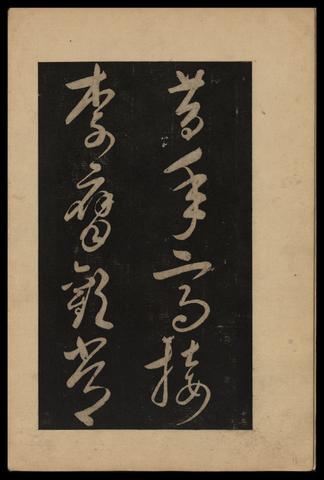 昔年高接
李膺歡常